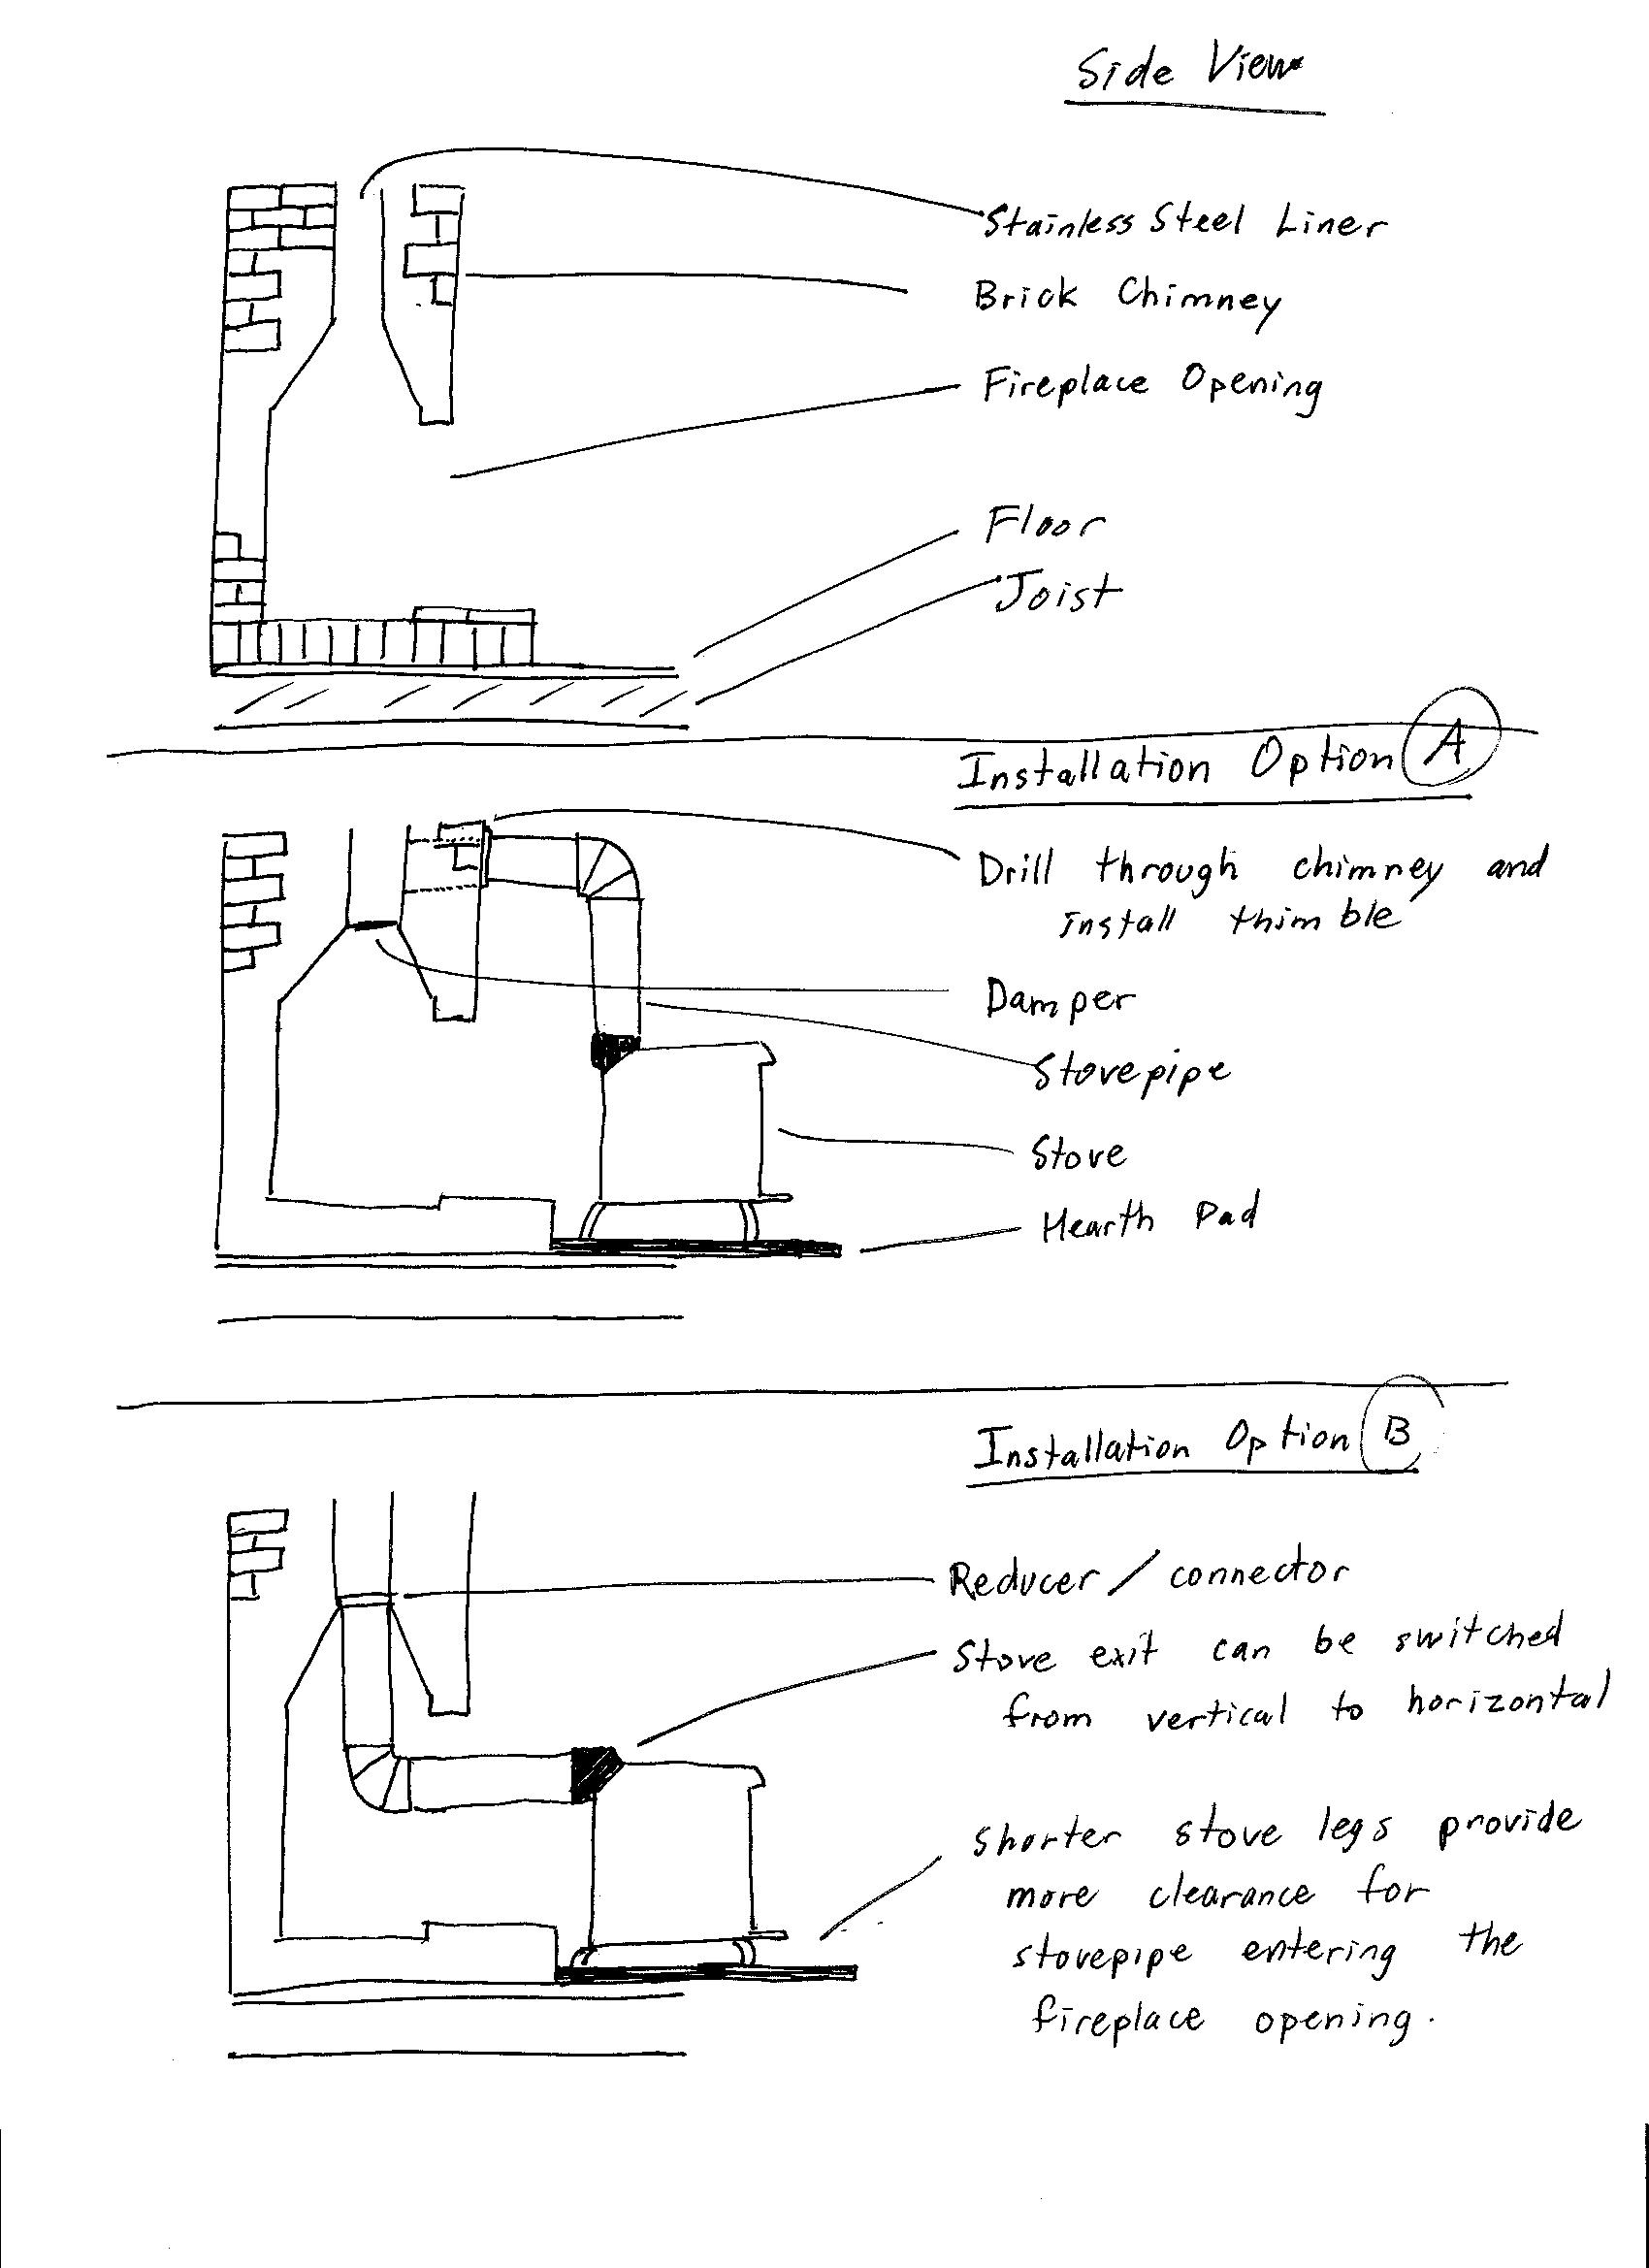 Side View
Stainless Steel Liner
Brick Chimney
Fireplace Opening
Floor
Joist
Installation Option A
Drill through chimney and
install thimble
Damper
Stovepipe
Stove
Hearth Pad
Installation Option B
Reducer / connector
Stove exit can be switched
from vertical to horizontal
Shorter stove legs provide
more clearance for
stovepipe entering the
fireplace opening.